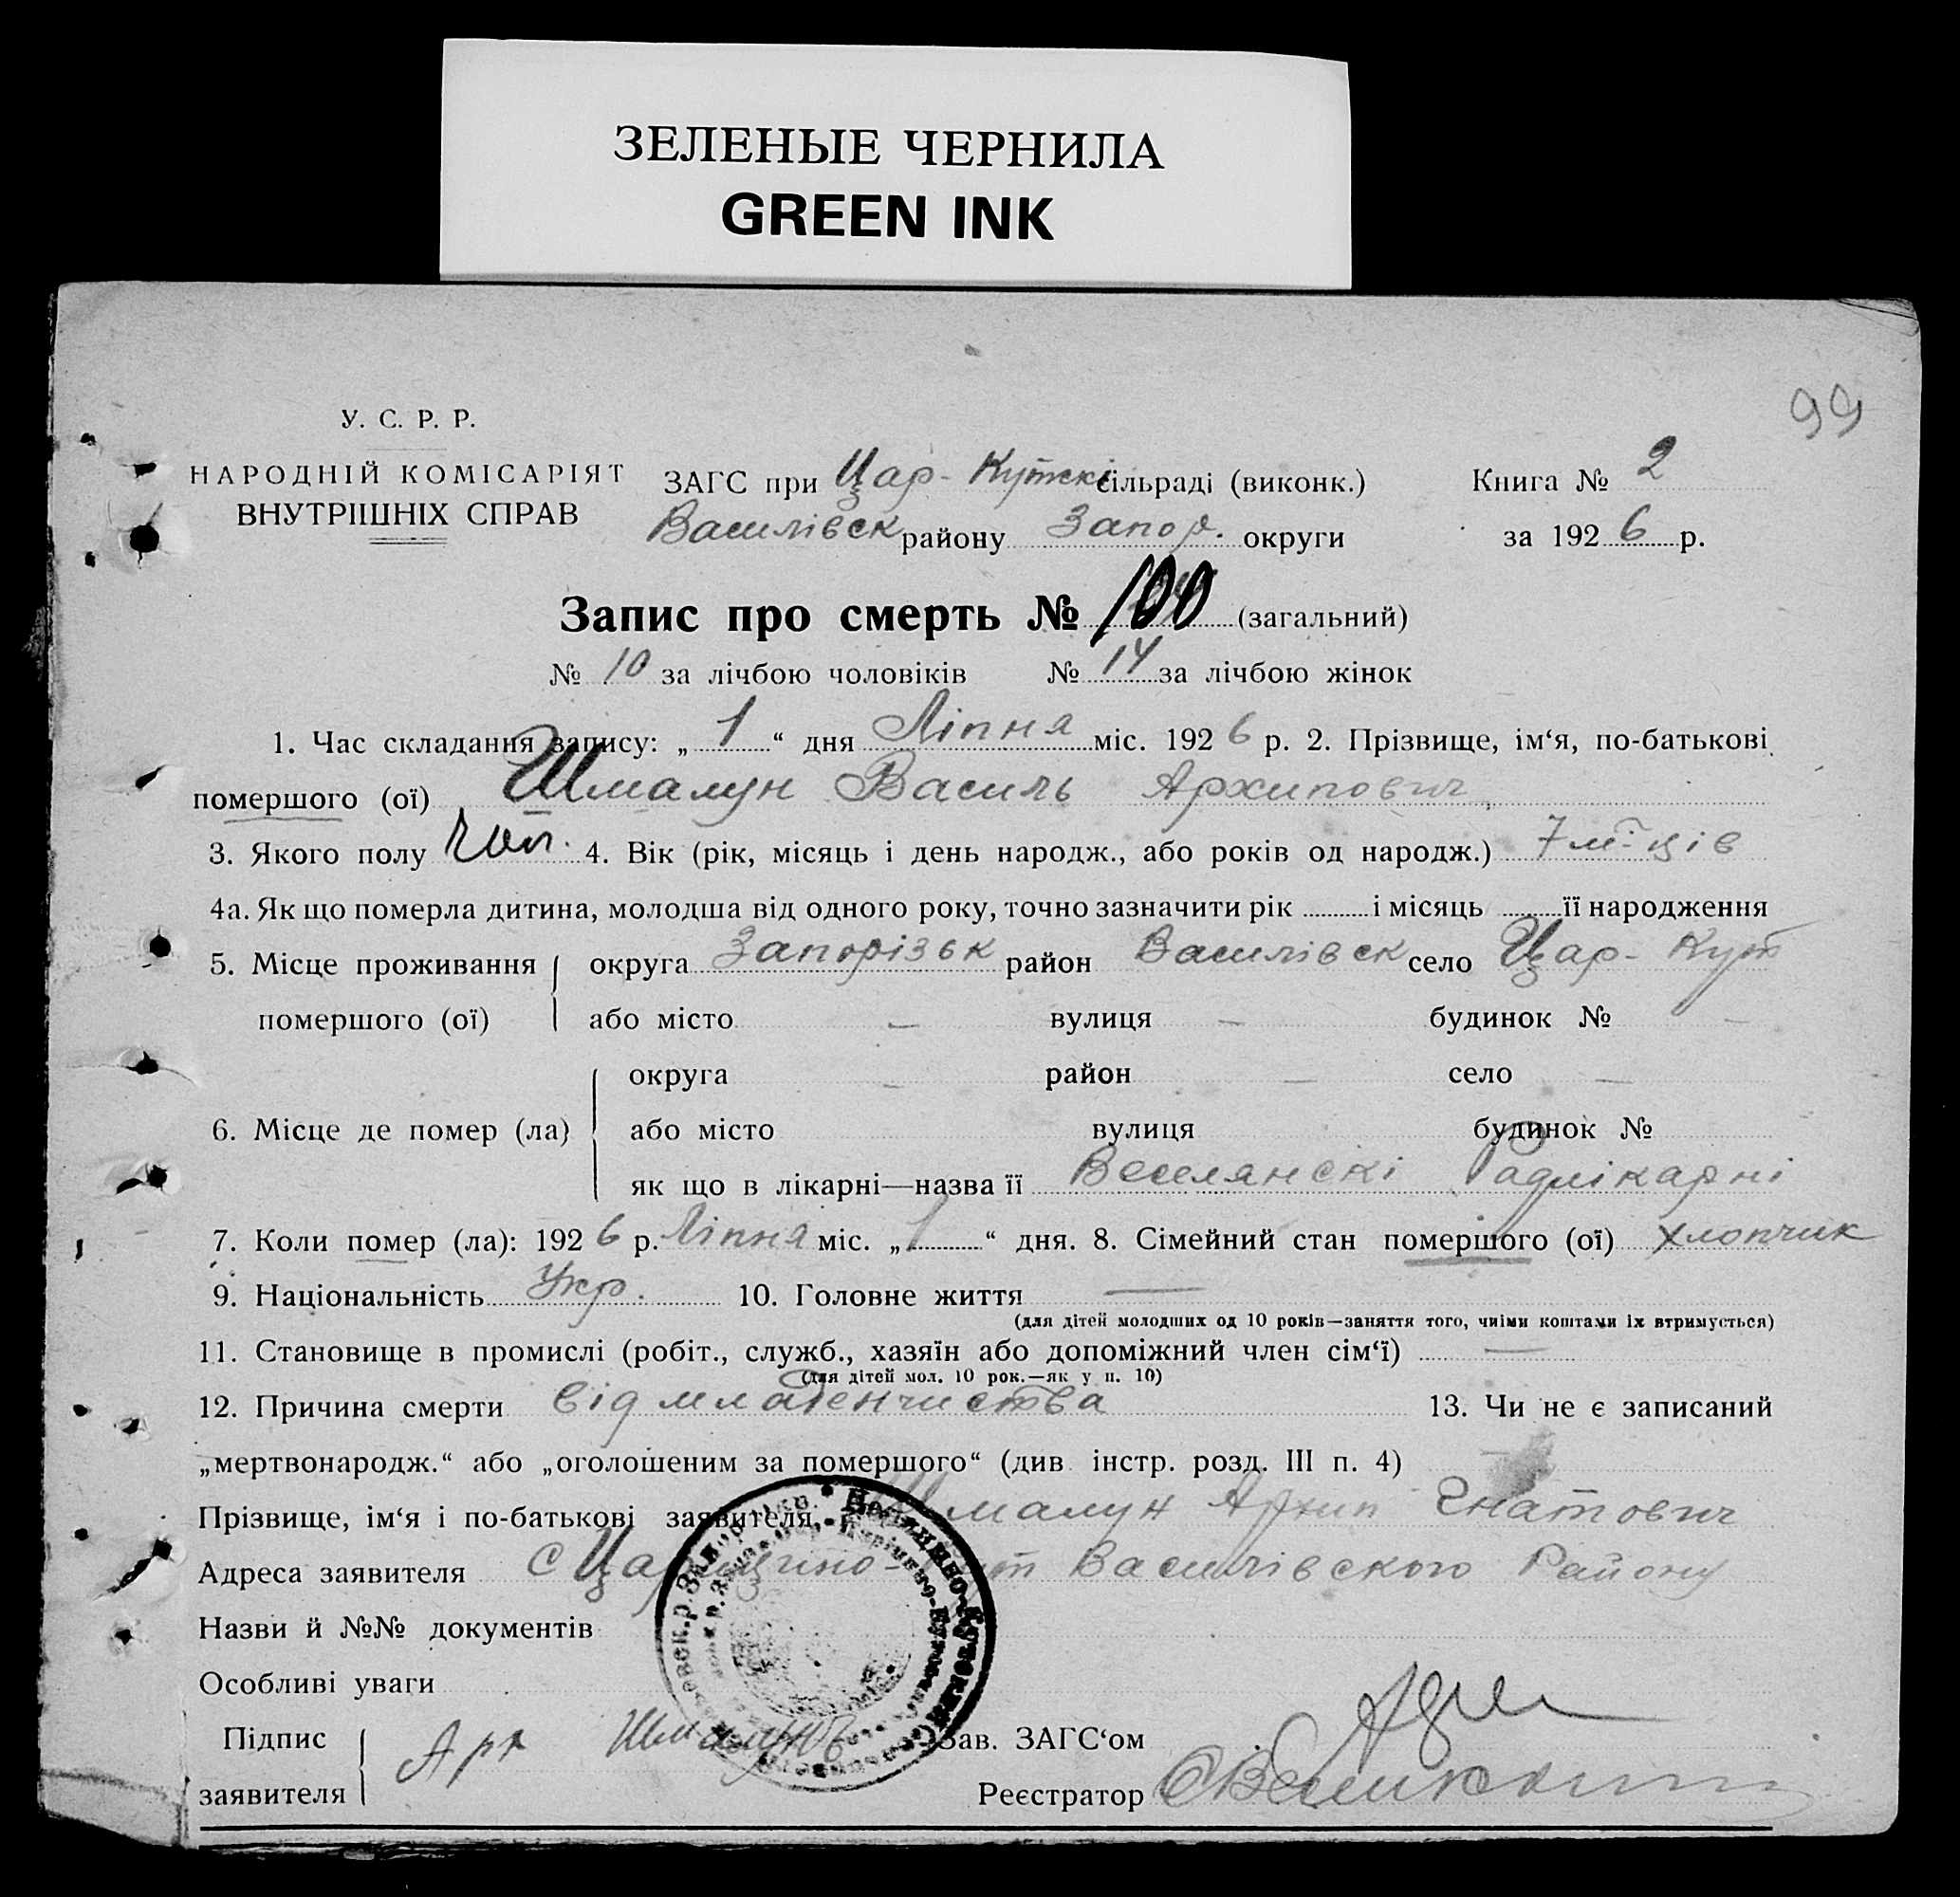 ЗЕЛЕНЫЕ ЧЕРНИЛА
GREEN INK
99
У. С. Р. Р.
НАРОДНІЙ КОМІСАРІЯТ
ВНУТРІШНІХ СПРАВ
ЗАГС при Цар-Кутскі сільраді (виконк.) Книга № 2
Василівск району Запор. округи за 1926 р.
Запис про смерть № 100 (загальний)
№ 10 за лічбою чоловіків № 14 за лічбою жінок
1. Час складання запису: „1“ дня Ліпня міс. 1926 р. 2. Прізвище, ім‘я, по-батькові
помершого (ої) Шмалун Василь Архипович
3. Якого полу чол. 4. Вік (рік, місяць і день народж., або років од народж.) 7 м-ців
4а. Як що померла дитина, молодша від одного року, точно зазначити рік і місяць її народження
5. Місце проживання округа Запорізьк район Василівск село Цар-Кут
помершого (ої) або місто — вулиця — будинок № —
округа — район — село —
6. Місце де помер (ла) або місто вулиця будинок №
як що в лікарні—назва її Веселянскі Радлікарні
7. Коли помер (ла): 1926 р. Ліпня міс. „1“ дня. 8. Сімейний стан помершого (ої) хлопчик
9. Національність Укр. 10. Головне життя —
(для дітей молодших од 10 років—заняття того, чиїми коштами їх втримується)
11. Становище в промислі (робіт., служб., хазяін або допоміжний член сім‘ї) —
(для дітей мол. 10 рок.—як у п. 10)
12. Причина смерти від младенчиства 13. Чи не є записаний
„мертвонародж.“ або „оголошеним за помершого“ (див. інстр. розд. III п. 4)
Прізвище, ім‘я і по-батькові заявителя Шмалун Архип Гнатович
Адреса заявителя с Царицино-Кут Василівского Району
Назви й №№ документів
Особливі уваги
Підпис Арх Шмалунъ Зав. ЗАГС‘ом
заявителя Реєстратор